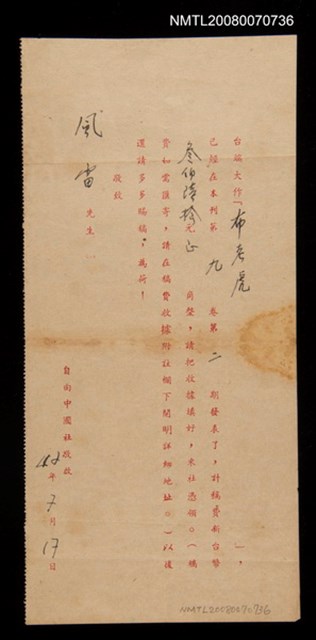 NMTL20080070736
台端大作「布老虎」，
已經在本刊第九卷第二期發表了，計稿費新台幣
叁佰陸拾元正角整，請把收據填好，來社憑領。（稿
費如需匯寄，請在稿費收據附註欄下開明詳細地址。）以後
還請多多賜稿，為荷！
敬致
風雷先生
自由中國社敬啟
42年7月17日
NMTL20080070736